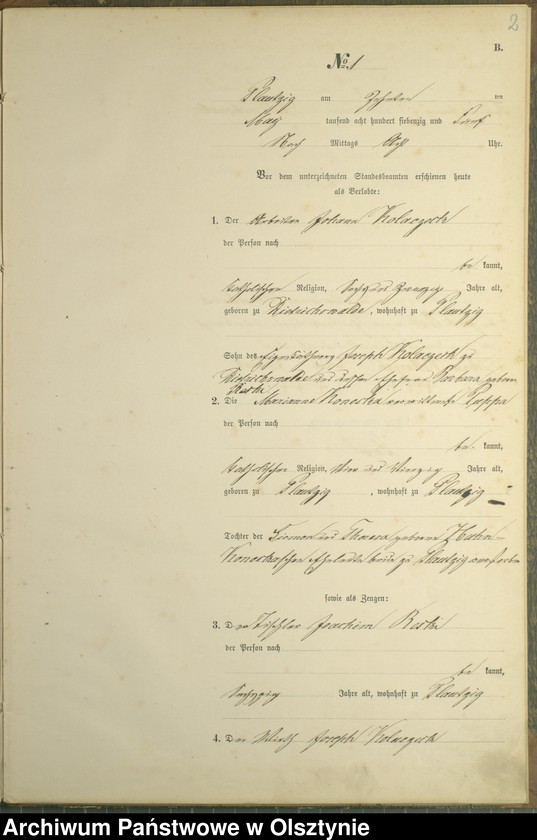 2
B.
No. 1
Plautzig am Zehnten ten
May tausend acht hundert siebenzig und Fünf
Nach Mittags Uhr.
Vor dem unterzeichneten Standesbeamten erschienen heute
als Verlobte:
1. Der Arbeiter Johann Kolaczech
der Person nach
be kannt,
katholischer Religion, Sechs und Zwanzig Jahre alt,
geboren zu Dietrichswalde, wohnhaft zu Plautzig
Sohn des Joseph Kolaczech zu
Dietrichswalde und dessen Ehefrau Barbara geborne
2. Die Marianne Konestka verwittwete Pappa
der Person nach
be kannt,
katholischer Religion, Vier und Vierzig Jahre alt,
geboren zu Plautzig, wohnhaft zu Plautzig
Tochter der Simon und Theresa geborne Hahn-
Konestkaschen Eheleute beide zu Plautzig verstorben
sowie als Zeugen:
3. Der Tischler Joachim
der Person nach
be kannt,
Sechszig Jahre alt, wohnhaft zu Plautzig
4. Der Wirth Joseph Kolaczech
Archiwum Państwowe w Olsztynie